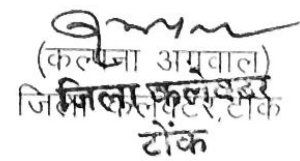 (कल्पना अग्रवाल)
जिला कलेक्टर, टोंक
जिला कलेक्टर
टोंक